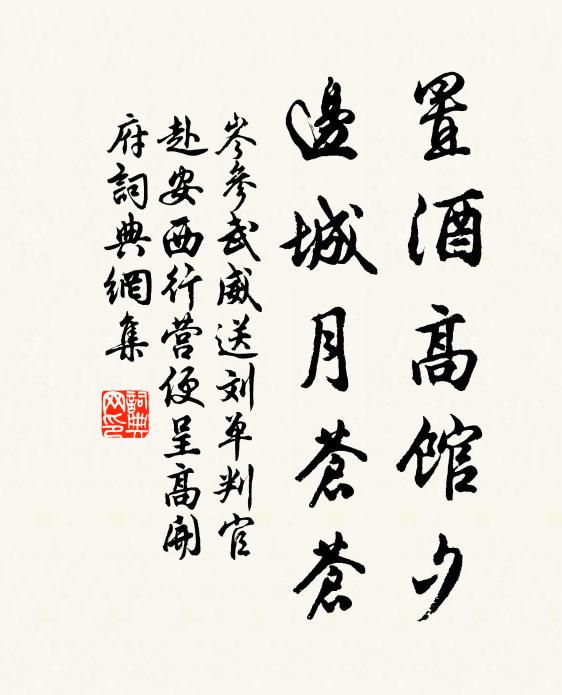 置酒高馆夕
邊城月蒼蒼
岑參武威送刘单判官
赴安西行营便呈高開
府詞典網集
詞典
网印